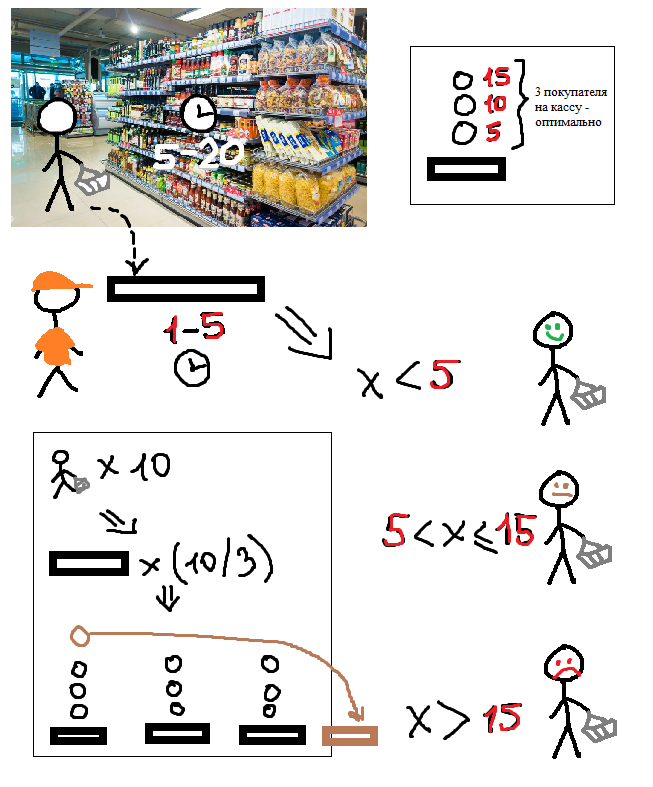 5-20
15
10
5
3 покупателя
на кассу -
оптимально
1-5
x < 5
x 10
x (10/3)
5 < x ≤ 15
x > 15